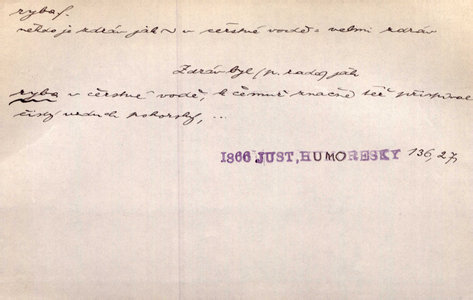 ryba f.
někdo je zdráv jak ~ v čerstvé vodě = velmi zdráv
Zdráv byl (p. rada) jak
ryba v čerstvé vodě, k čemuž značně též přispíval
čistý vzduch pohorský, ...
1866 JUST, HUMORESKY 136,27,